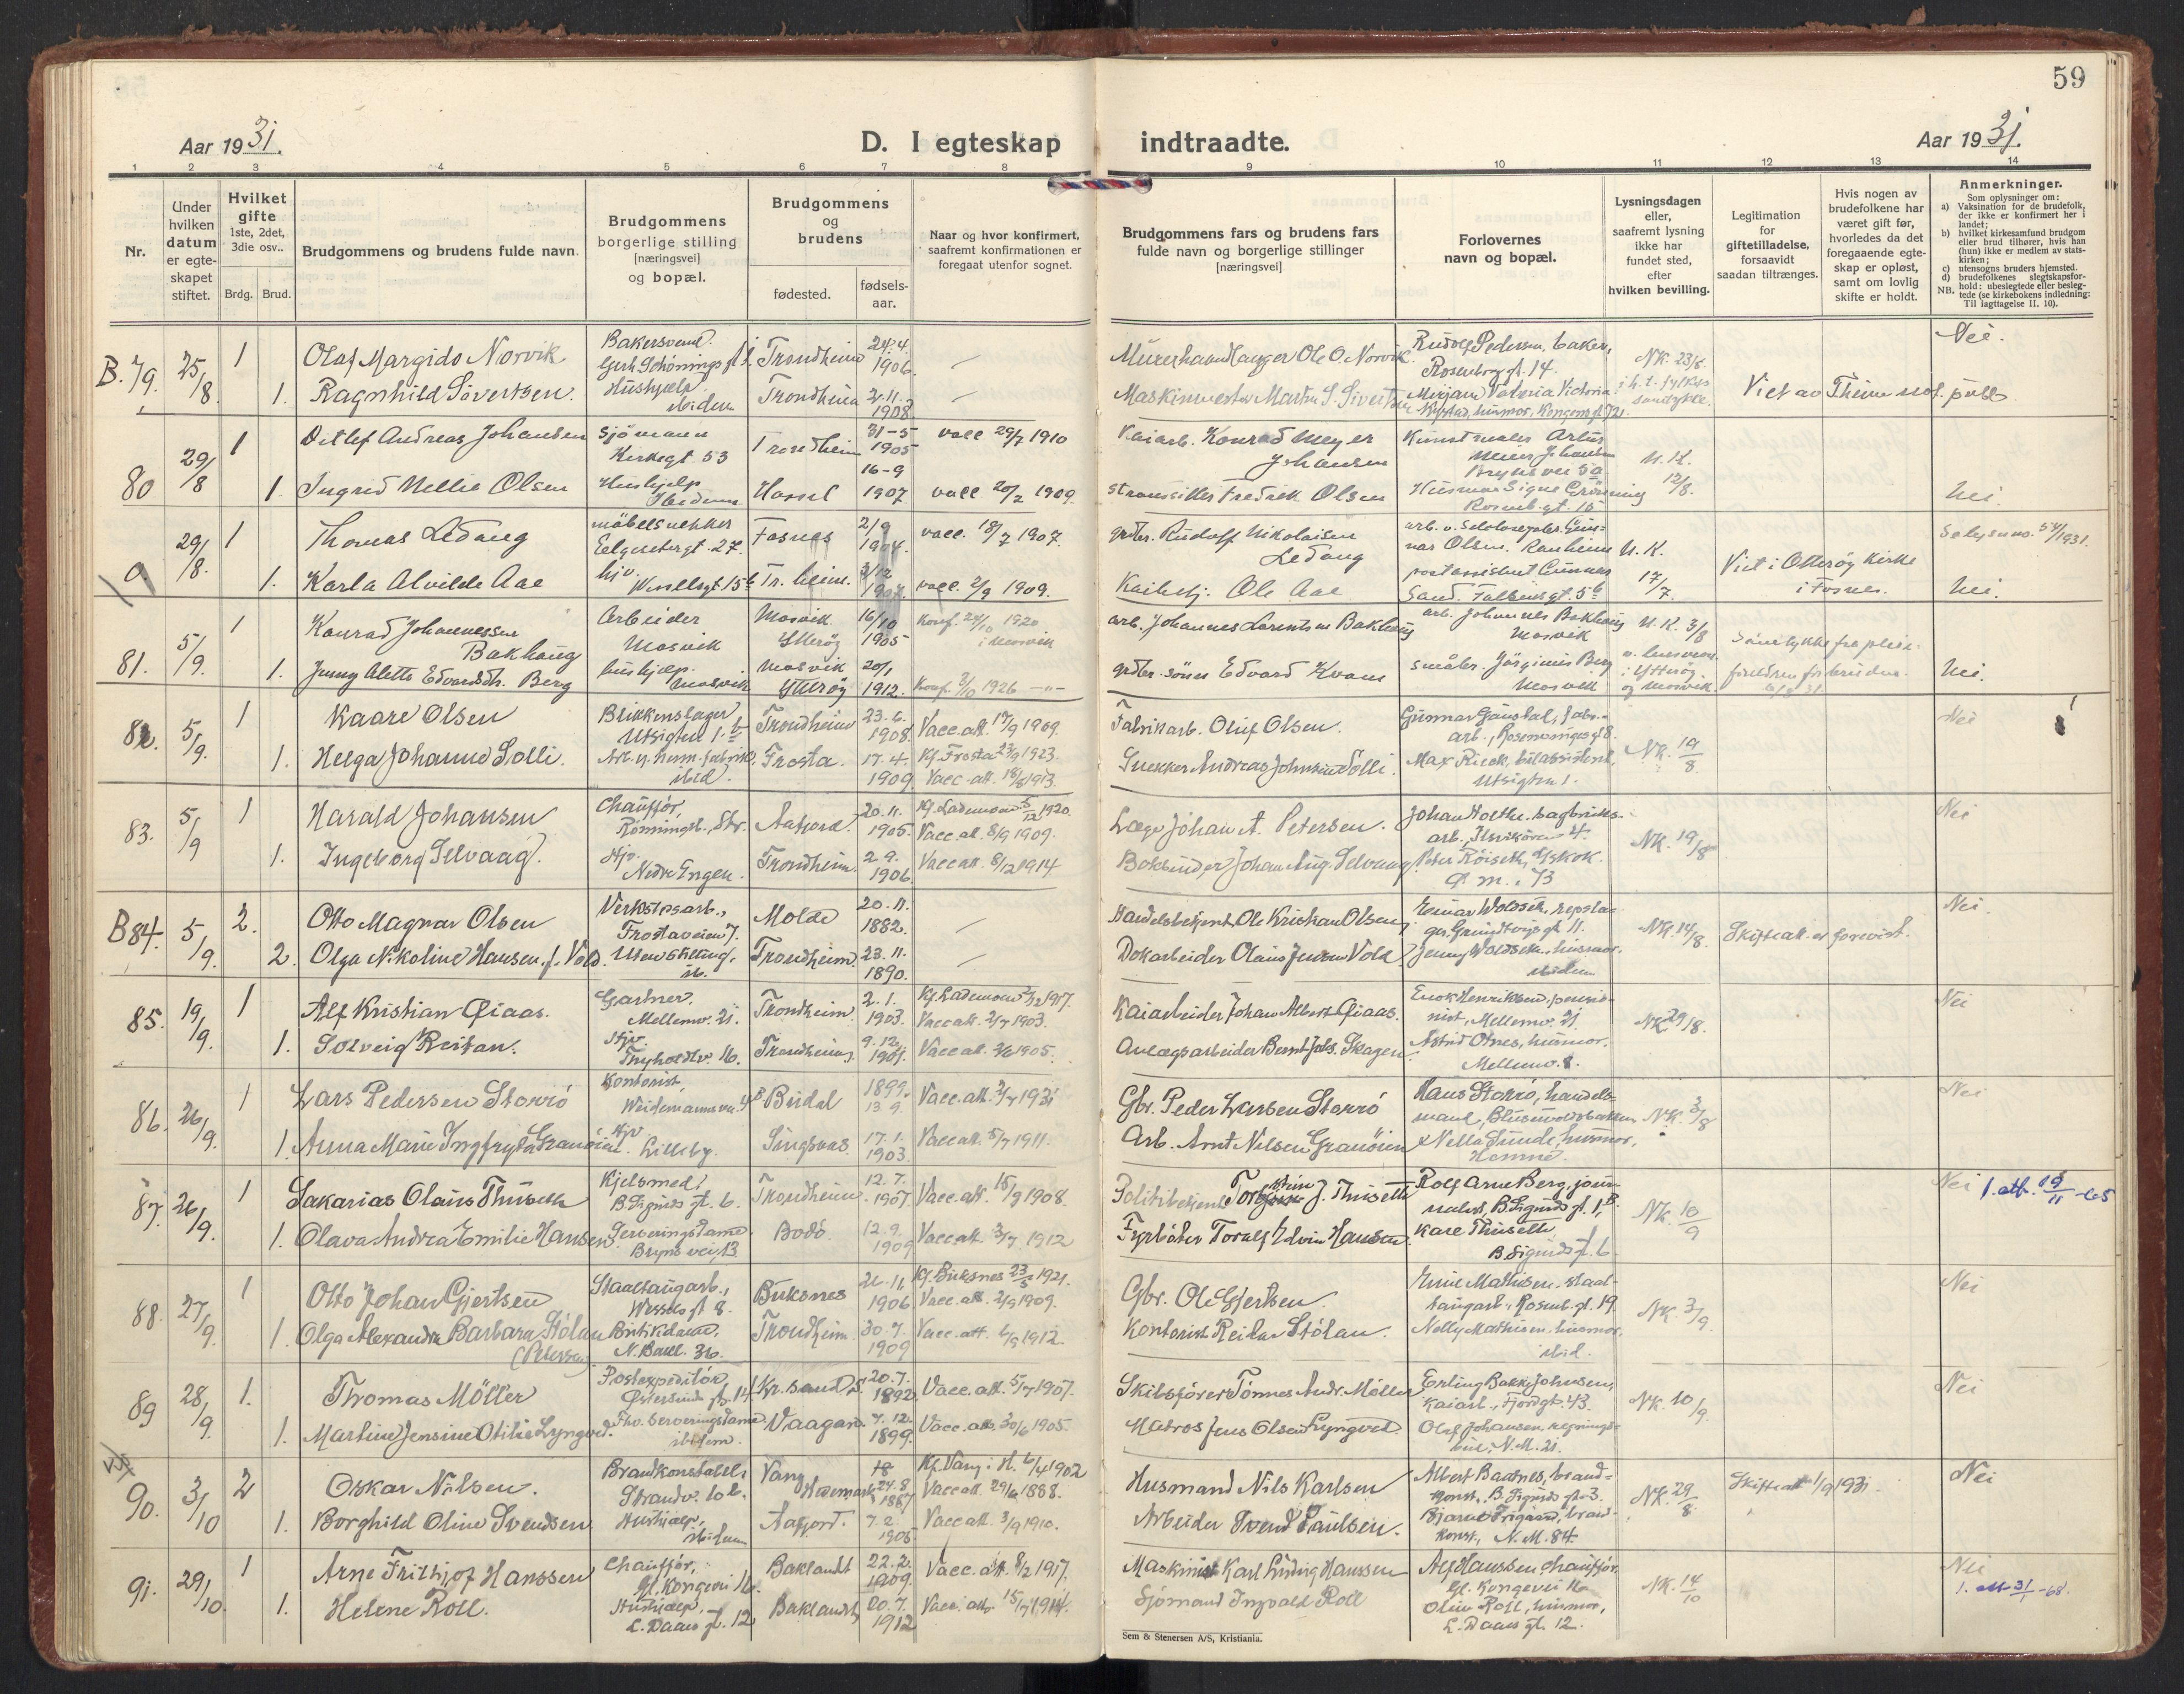 59
Aar 1931.
D. I egteskap indtraadte.
Aar 1931.
1 2 3 4 5 6 7 8 9 10 11 12 13 14
Nr.
Under hvilken datum er egteskapet stiftet.
Hvilket gifte 1ste, 2det, 3die osv..
Brdg. Brud.
Brudgommens og brudens fulde navn.
Brudgommens borgerlige stilling [næringsvei] og bopæl.
Brudgommens og brudens
fødested.
fødselsaar.
Naar og hvor konfirmert, saafremt konfirmationen er foregaat utenfor sognet.
Brudgommens fars og brudens fars fulde navn og borgerlige stillinger [næringsvei]
Forlovernes navn og bopæl.
Lysningsdagen eller, saafremt lysning ikke har fundet sted, efter hvilken bevilling.
Legitimation for giftetilladelse, forsaavidt saadan tiltrænges.
Hvis nogen av brudefolkene har været gift før, hvorledes da det foregaaende egteskap er opløst, samt om lovlig skifte er holdt.
Anmerkninger.
Som oplysninger om:
a) Vaksination for de brudefolk, der ikke er konfirmert her i landet;
b) hvilket kirkesamfund brudgom eller brud tilhører, hvis han (hun) ikke er medlem av statskirken;
c) utensogns bruders hjemsted.
d) brudefolkenes slegtskapsforhold: ubeslegtede eller beslegtede (se kirkebokens indledning:
NB. Til iagttagelse II, 10).
B. 79. 25/8 1 Olaf Margido Norvik Bakersvend. Gerh. Schönings gt. Trondheim 24.4. 1906. Murerhaandlanger Ole O. Norvik. Rudolf Pedersen, baker, Rosenborg gt. 14. NK. 23/8. Nei.
1. Ragnhild Sivertsen. Hushjelp ibidem Trondheim 2.11. 1908. Maskinmester Martin S. Sivertsen Mirjam Valeria Victoria Viet av Them not. publ.
80 29/8 1 Detlef Andreas Johansen Sjömann Kirkegt. 53 Trondheim 31-5 1905 vacc 29/7 1910 Kaiarb. Konrad Meyer Johansen Kunstmaler Artur Meier Johansen Brynsvei 5a N.K. 12/8.
1. Ingrid Nellie Olsen Hushjelp Ibidem Hassel 16-9 1907 vacc 20/2 1909. Fredrik Olsen Husmor Signe Gröning Rosenb. gt. 15 Nei.
0. 29/8. 1 Thomas Ledang möbelsnekker Eelgesetergt. 27. Fosnes 2/9 1904. vacc. 18/7 1907. grdbr. Rudolf Nikolaisen Ledang arb. v. Gunnar Olsen. Ranheim N.K. 17/7. Viet i Otterøy kirke i Fosnes. 54/1931.
1. Karla Alvilde Aae hj. Wessellsgt 15 b Tr.heim. 3/12 vacc. 2/9 1909. Kaibetj. Ole Aae postassistent Gunnar Sand. Falsensgt. 5b Nei.
81. 5/9. 1 Konrad Johannessen Bakhaug Arbeider Mosvik Mosvik Ytterøy 16/10 1905 Konf. 24/10 1920 i Mosvik arb. Johannes Larentsen Bakhaug arb. Johannes Bakhaug Mosvik N.K. 3/8 i Ytterøy og Mosvik.
1. Jenny Alette Edvardsdtr. Berg hushjelp. Mosvik Mosvik Ytterøy 20/1 1912. Konf. 3/10 1926 -"- grdbr. sönn Edvard Kvam småbr. Jörginius Berg Mosvik Nei.
82. 5/9. 1 Kaare Olsen Blikkenslager Utsigten 1. Trondheim 23.6. 1908. Vacc.att. 17/9 1909. Fabrikarb. Oluf Olsen. Gunnar Gaustal, fabr.arb., NK. 19/8. Nei
1. Helga Johanne Solli. ibid. Frosta. 17.4. 1909 Kf. Frosta 23/9 1923. Vacc.att. 18/8 1913. Snekker Andreas Johnsen Solli. Max Rieck, bilassistent, Utsigten 1.
83. 5/9 1 Harald Johansen Chaufför, Rönningsb., Str. Aafjord. 20.11. 1905. Kf. Lademoen 5/12 1920. Vacc.att. 8/9 1909. Læge Johan A. Petersen. Johan Holthe, sagbruksarb., Ilsvikören 4. NK. 19/8 Nei
1. Ingeborg Selvaag. Hjv. Nedre Engen. Trondheim. 2.9. 1906. Vacc.att. 8/12 1914 Bokbinder Johan Aug. Selvaag Peter Röiseth,
B 84. 5/9. 2. Otto Magnar Olsen Verkstedsarb., Frostaveien 7. Molde 20.11. 1882. Handelsbetjent Ole Kristian Olsen Einar Woldseth, repslager, Grundtvigs gt. 11. NK. 14/8. Skifteatt. er forevist. Nei
2. Olga Nikoline Hansen, f. Vold. Uten stilling, ib. Trondheim. 23.11. 1890. Dokarbeider Olaus Jenssen Vold Jenny Woldseth, husmor. ibidem
85. 19/9. 1 Alf Kristian Qiaas. Gartner. Mellemv. 21. Trondheim. 2.1. 1903. Kf. Lademoen 2/12 1917. Vacc.att. 2/7 1903. Kaiarbeider Johan Albert Qiaas. Enok Henriksen, pensionist, Mellemv. 21. NK. 29/8. Nei
1. Solveig Reitan. Hjv. Thyholdtv. 16. Trondheim. 9.12. Vacc.att. 2/6 1905. Anlægsarbeider Bernt Johs. Skagen Astrid Otnes, husmor. Mellemv. 8.
86. 26/9. 1 Lars Pedersen Storrö Kontorist, Weidemannsvei. 4b Budal 1899. 13.9. Vacc.att. 3/7 1931 Gbr. Peder Larsen Storrö Hans Storrö, handelsmand, NK. 3/8 Nei
1. Anna Marie Granöien Hjv Lilleby. Singsaas. 17.1. 1903. Vacc.att. 5/7 1911. Arb. Arnt Nilsen Granöien Nella Sunde, husmor, Hemne.
87. 26/9. 1 Sakarias Olaus Thuseth Kjelsmed, B. Sigurds gt. 6. Trondheim 12.7. 1907. Vacc.att. 15/9 1908. Politibetjent Torstein J. Thuseth Rolf Arne Berg, journalist, B. Sigurds gt. 1, B. NK. 10/9 Nei 1. att. 19/11 -65
1. Olava Andrea Emilie Hansen Serveringsdame. Bryns vei 13. Bodö. 12.9. 1909 Vacc.att. 3/7 1912 Fyrböter Toralf Edvin Hansen. Kare Thuseth, B. Sigurds gt. 6
88. 27/9. 1 Otto Johan Gjertsen Staaltaugarb., Wessels gt 8. Buksnes 26.11. 1906 Kf. Buksnes 23/5 1921. Vacc.att. 2/9 1909. Gbr. Ole Gjertsen. Emil Mathisen, staaltaugarb., Rosenb. gt. 19. NK. 3/9. Nei
1 Olga Alexandra Barbara Stölan (Petersen) Butikdame, N. Bakl. 36. Trondheim. 30.7. 1909 Vacc.att. 6/9 1912. Kontorist Reidar Stölan. Nelly Mathisen, husmor, ibid.
89 28/9. 1. Thomas Möller Postexpeditör, Östersunds gt. 14. Kr.sand S. 20.7. 1892. Vacc.att. 5/7 1907. Skibsförer Tönnes Andr. Möller Erling Bakke Johnsen, Kaiarb., Fjordgt. 43. NK. 10/9. Nei
1. Martine Jensine Otilie Lyngved. Fhv. Serveringsdame ibidem. Vaagan. 7.12. 1899. Vacc.att. 30/6 1905. Matros Jens Olsen Lyngved. Olaf Johansen, N.M. 21.
90. 3/10 2 Oskar Nilsen. Brandkonstabel, Strandv. Vang Hedemark 24.8 1887 Kf. Vang i H. 6/4 1902 Vacc.att. 29/6 1888. Husmand Nils Karlsen Albert Baatnes, brandkonst., B. Sigurds gt. 3. NK. 29/8. Skifteatt 1/9 1931. Nei
1. Borghild Oline Svendsen Hushjelp, ibidem Aafjord. 7.2. 1905 Vacc.att. 3/9 1910. Arbeider Svend Paulsen. Bjarne brandkonst., N.M. 84.
91. 29/10. 1 Arne Frithjof Hanssen Chauffør, Gl. Kongevei 16. Baklandt 22.2. 1909. Vacc.att. 8/2 1917. Maskinist Karl Ludvig Hanssen Alf Hanssen chauffør, Gl. Kongevei 16 NK. 14/10 Nei 1. att 31/1 -68.
1. Helene Roll. Hushjelp, L. Daaes gt. 12 Baklandt 20.7. 1912 Vacc.att. 15/7 1914. Sjömand Ingvald Roll Oline Roll, husmor, L. Daaes gt. 12.
Sem & Stenersen A/S, Kristiania.